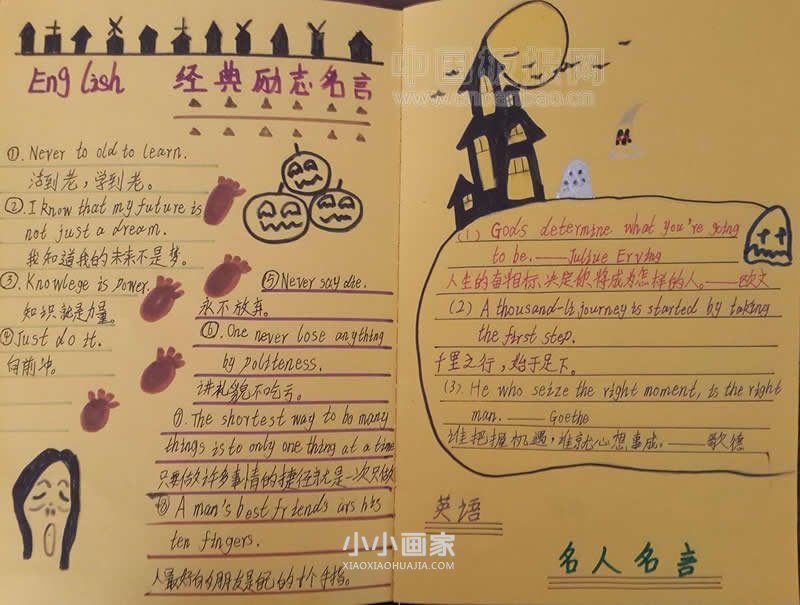 English 经典励志名言
①. Never to old to learn.
活到老，学到老。
②. I know that my future is
not just a dream.
我知道我的未来不是梦。
③. Knowlege is power.
知识就是力量。
④ Just do it.
向前冲。
⑤ Never say die.
永不放弃。
⑥. One never lose anything
by politeness.
讲礼貌不吃亏。
⑦. The shortest way to do many
things is to only one thing at a time
只要做许多事情的捷径就是一次只做
⑧ A man's best friends ars his
ten fingers.
人最好的朋友是自己的十个手指。
中国板报网
(1) Gods determine what you're going
to be. —— Juliue Erving
人生的奋斗目标、决定你将成为怎样的人。——欧文
(2) A thousand-li journey is started by taking
the first step.
千里之行，始于足下。
(3). He who seize the right moment, is the right
man. —— Goethe
谁把握机遇，谁就心想事成。——歌德
英语
名人名言
小小画家
XIAOXIAOHUAJIA.COM